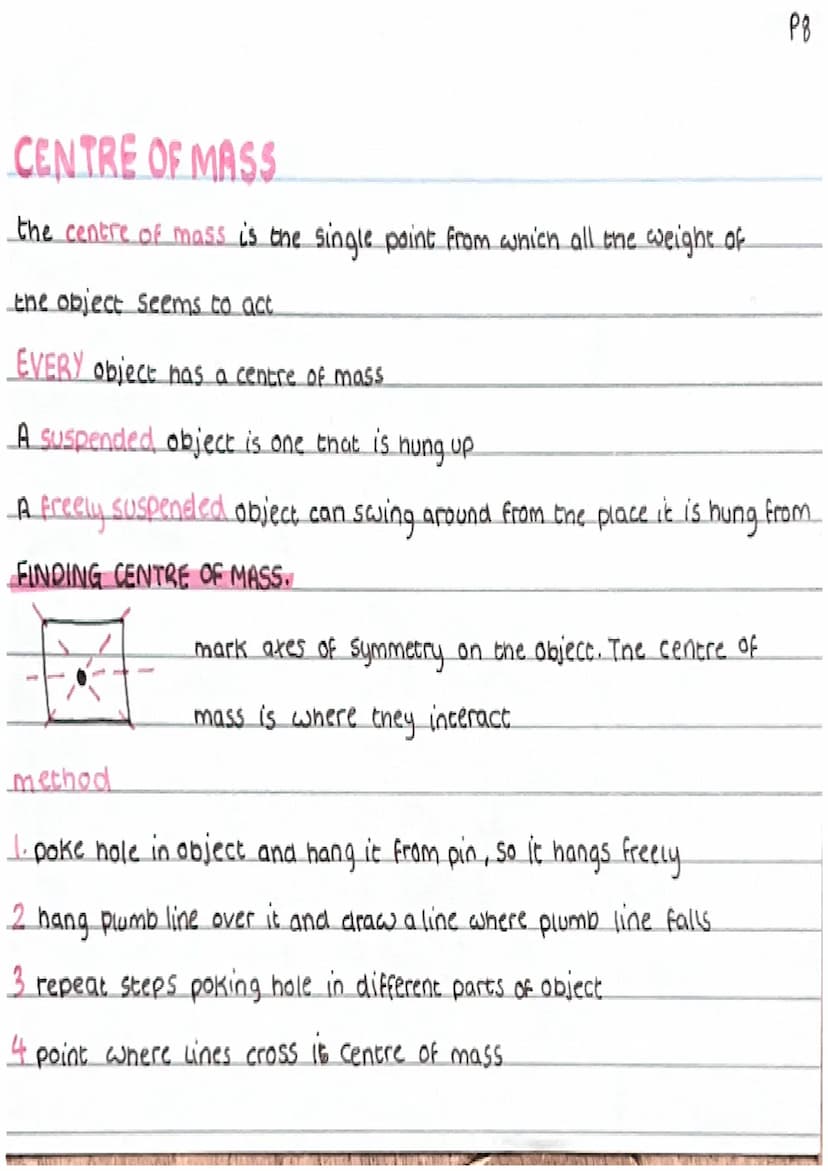 P8
CENTRE OF MASS
the centre of mass is the single point from which all the weight of
the object seems to act
EVERY object has a centre of mass
A suspended object is one that is hung up
A freely suspended object can swing around from the place it is hung from
FINDING CENTRE OF MASS.
mark axes of symmetry on the object. The centre of
mass is where they interact
method
1. poke hole in object and hang it from pin, so it hangs freely
2 hang plumb line over it and draw a line where plumb line falls
3 repeat steps poking hole in different parts of object
4 point where lines cross is centre of mass